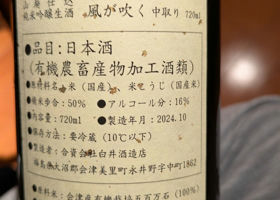 山廃仕込
純米吟醸生酒 風が吹く 中取り 720ml
●品目:日本酒
(有機農畜産物加工酒類)
●原材料名:米(国産)、米こうじ(国産米)
●精米歩合:50% ●アルコール分:16%
●内容量:720ml ●製造年月:2024.10
●保存方法:要冷蔵(10℃以下)
●製造者:合資会社白井酒造店
福島県大沼郡会津美里町永井野字中町1862
●原料米:会津産有機栽培五百万石(100%)